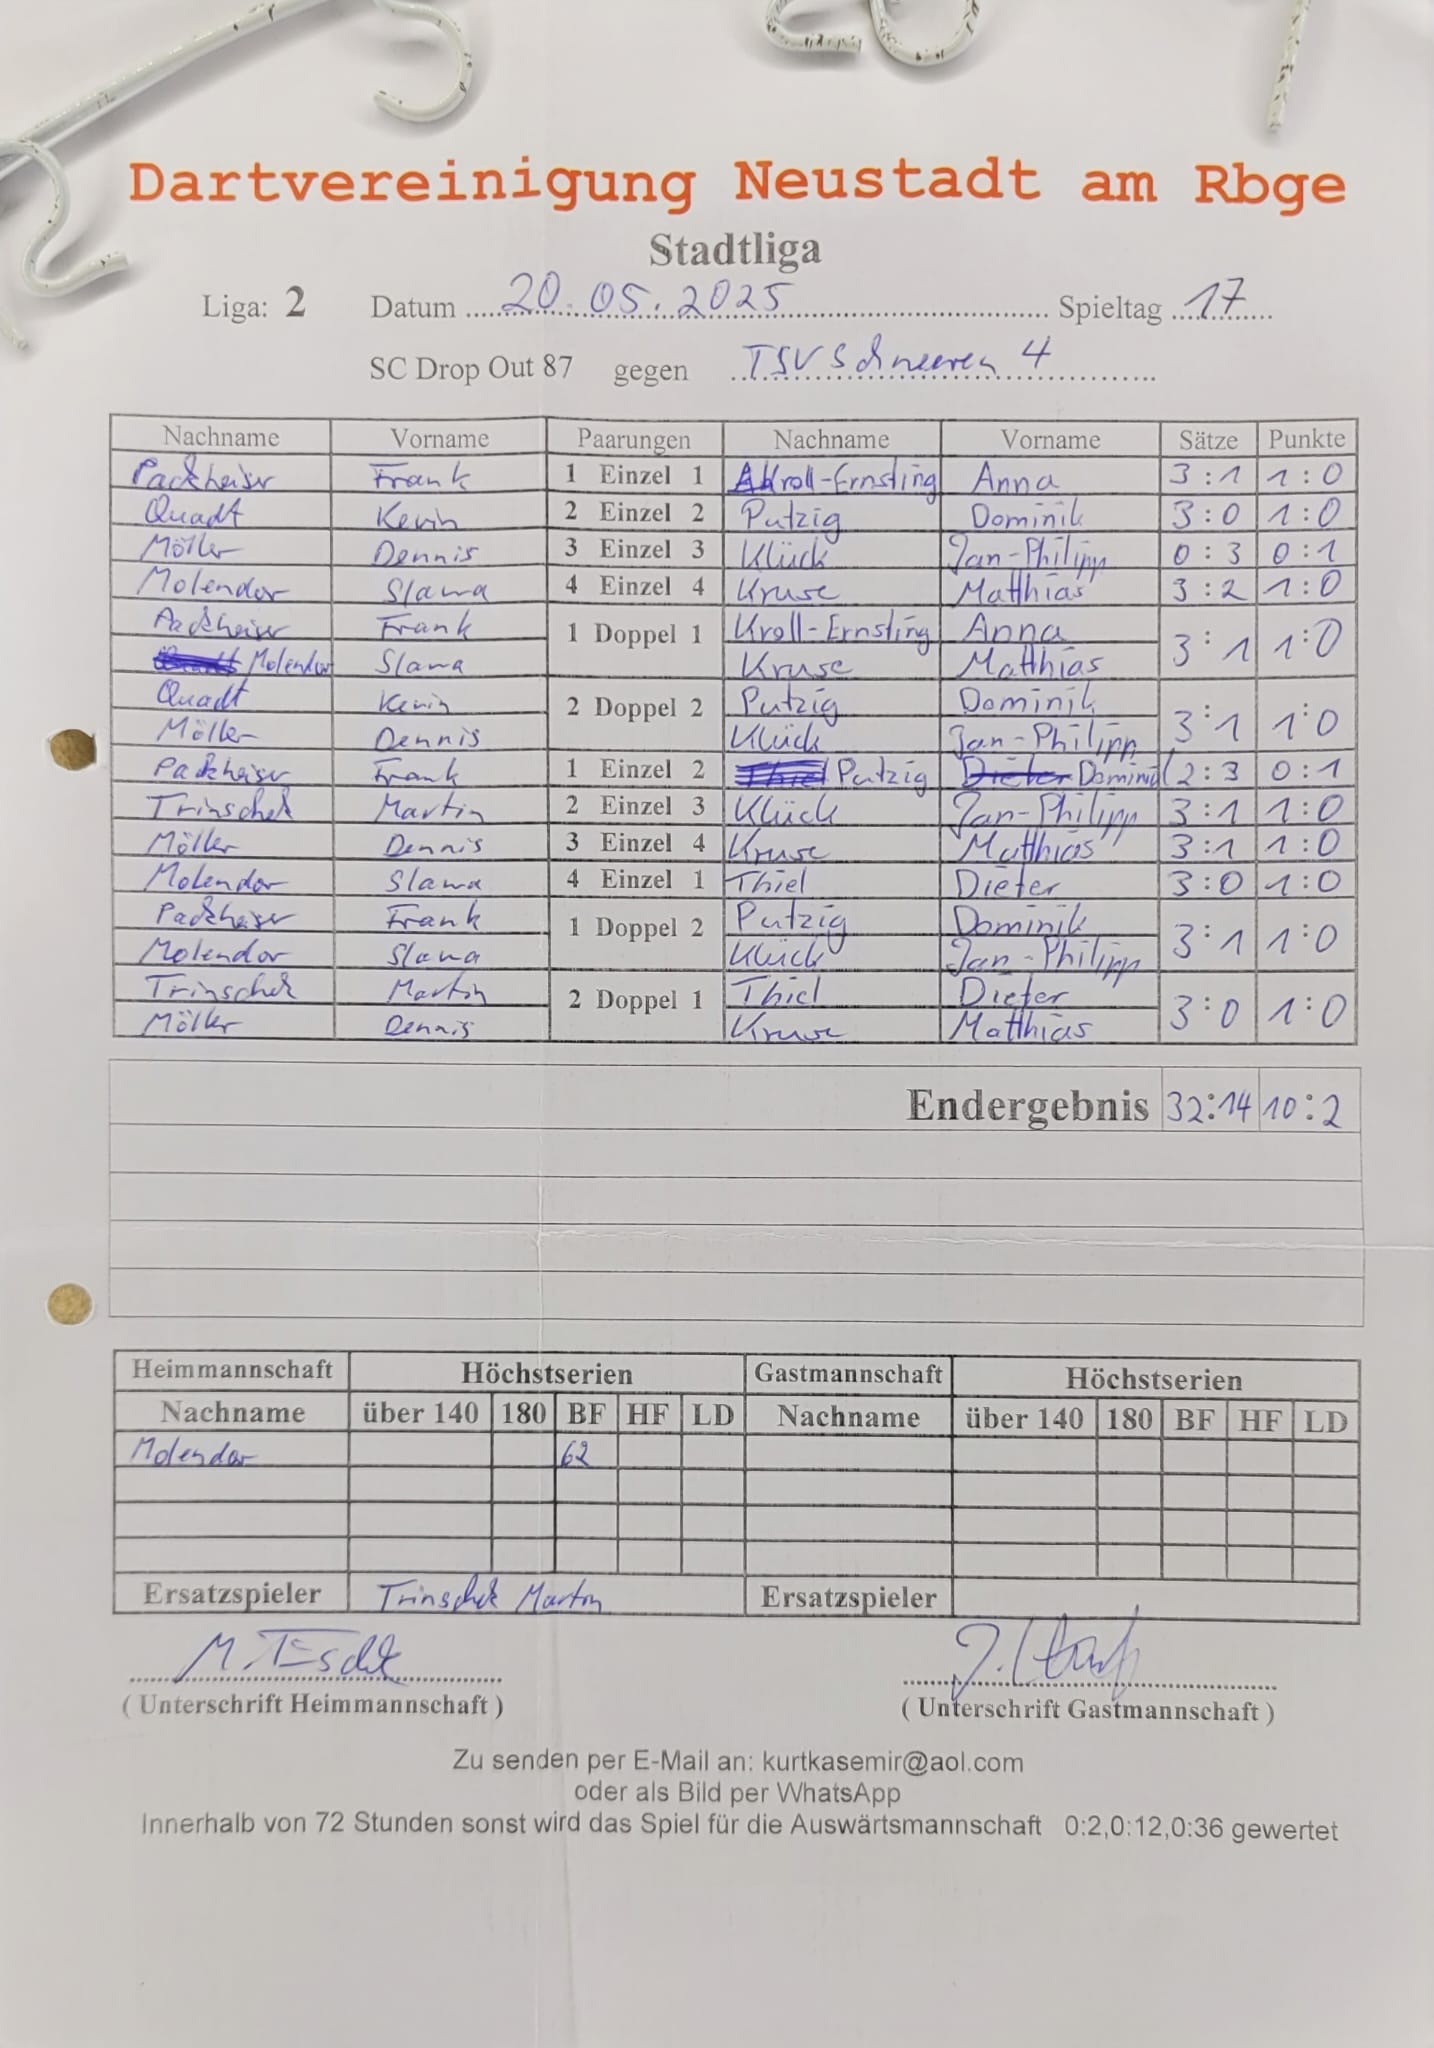 Dartvereinigung Neustadt am Rbge
Stadtliga
Liga: 2 Datum 20.05.2025 Spieltag 17
SC Drop Out 87 gegen TSV Schneeren 4
Nachname Vorname Paarungen Nachname Vorname Sätze Punkte
Packheiser Frank 1 Einzel 1 Kroll-Ernsting Anna 3:1 1:0
Quadt Kevin 2 Einzel 2 Putzig Dominik 3:0 1:0
Möller Dennis 3 Einzel 3 Klück Jan-Philipp 0:3 0:1
Molendor Slawa 4 Einzel 4 Kruse Matthias 3:2 1:0
Packheiser Frank 1 Doppel 1 Kroll-Ernsting Anna 3:1 1:0
Molendor Slawa Kruse Matthias
Quadt Kevin 2 Doppel 2 Putzig Dominik 3:1 1:0
Möller Dennis Klück Jan-Philipp
Packheiser Frank 1 Einzel 2 Thiel Putzig Dieter Dominik 2:3 0:1
Trinschek Martin 2 Einzel 3 Klück Jan-Philipp 3:1 1:0
Möller Dennis 3 Einzel 4 Kruse Matthias 3:1 1:0
Molendor Slawa 4 Einzel 1 Thiel Dieter 3:0 1:0
Packheiser Frank 1 Doppel 2 Putzig Dominik 3:1 1:0
Molendor Slawa Klück Jan-Philipp
Trinschek Martin 2 Doppel 1 Thiel Dieter 3:0 1:0
Möller Dennis Kruse Matthias
Endergebnis 32:14 10:2
Heimmannschaft Höchstserien Gastmannschaft Höchstserien
Nachname über 140 180 BF HF LD Nachname über 140 180 BF HF LD
Molendor 62
Ersatzspieler Trinschek Martin Ersatzspieler
( Unterschrift Heimmannschaft ) ( Unterschrift Gastmannschaft )
Zu senden per E-Mail an: kurtkasemir@aol.com
oder als Bild per WhatsApp
Innerhalb von 72 Stunden sonst wird das Spiel für die Auswärtsmannschaft 0:2,0:12,0:36 gewertet